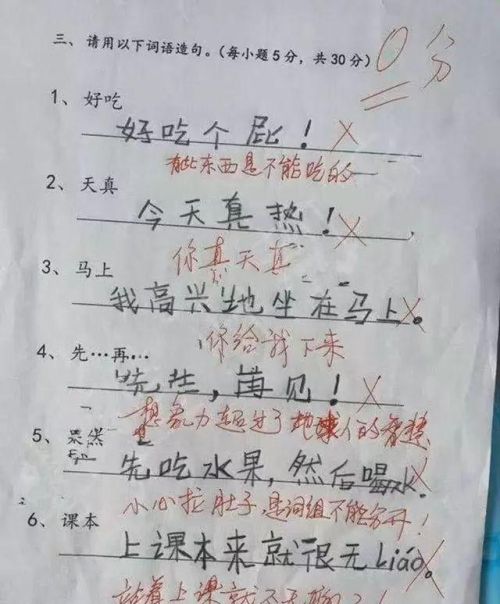 三、请用以下词语造句。(每小题5分，共30分) 0分
1、好吃
好吃个屁！
有些东西是不能吃的
2、天真
今天真热！
你真天真
3、马上
我高兴地坐在马上。
你给我下来
4、先…再…
先生，再见！
想象力超过了地球人的智慧
5、果然
先吃水果，然后喝水。
小心拉肚子，是词组不能分开！
6、课本
上课本来就很无liáo。
站着上课就不无聊了！